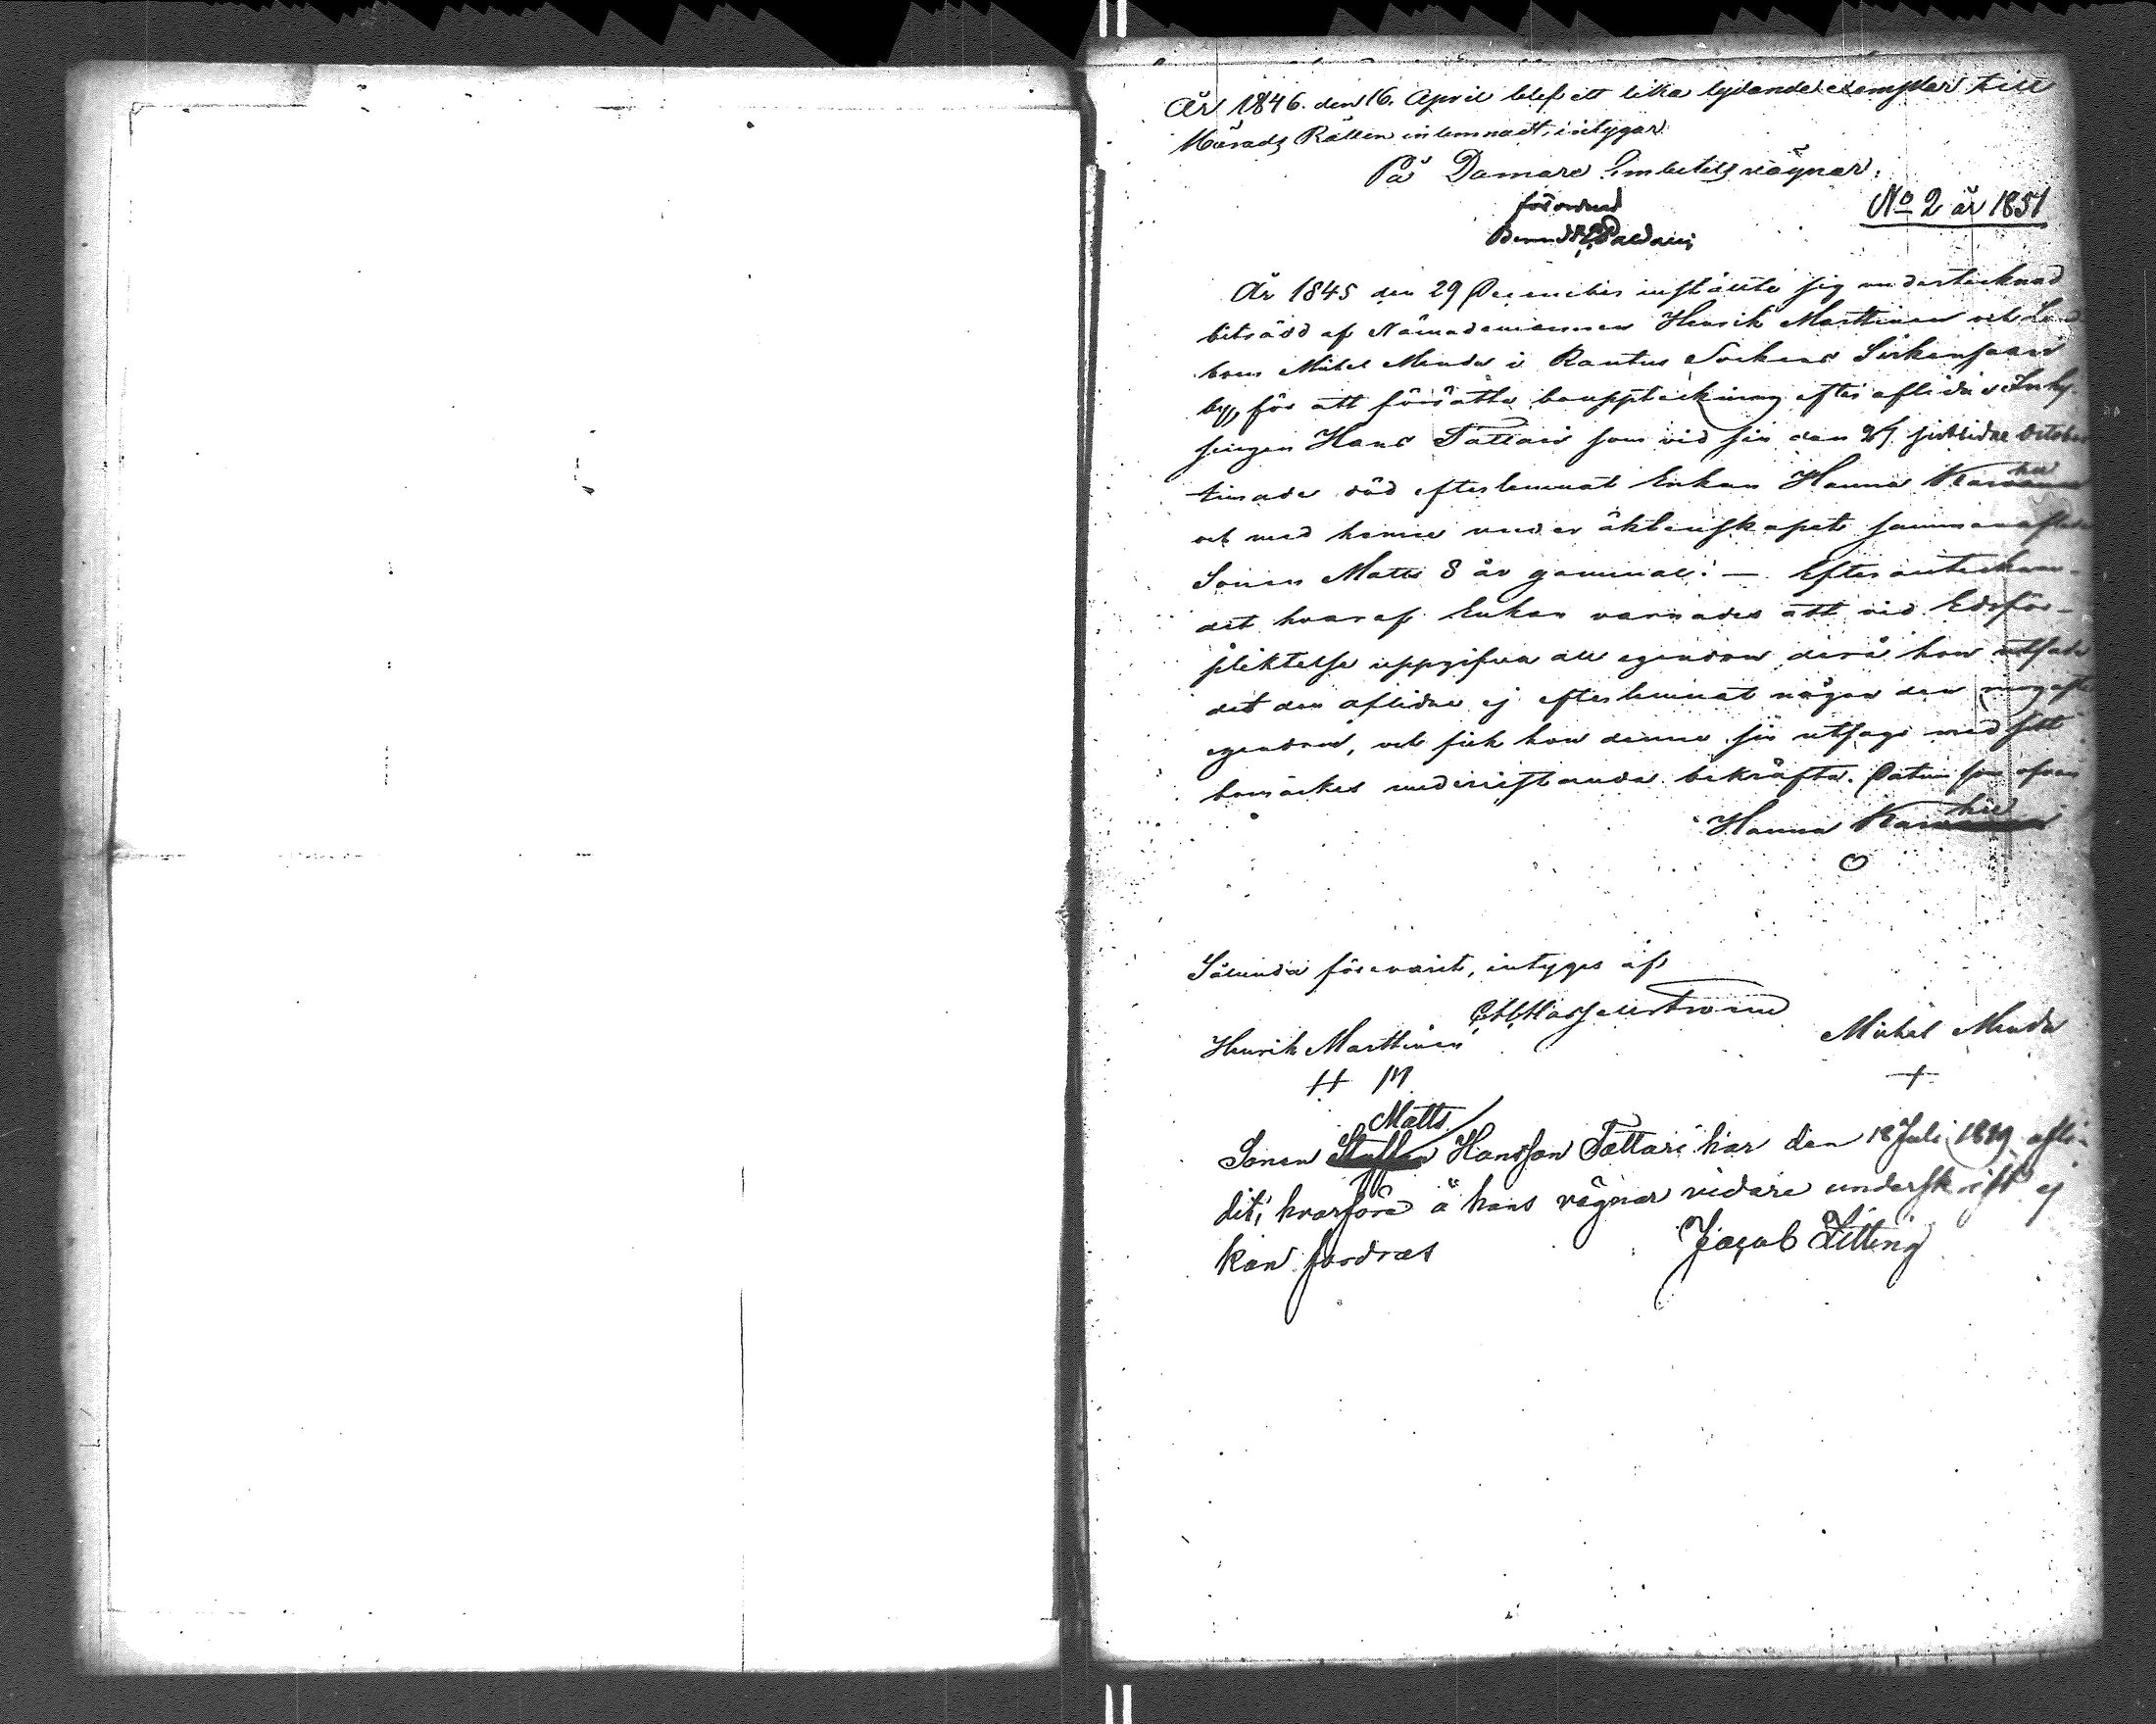 År 1846. den 16. April blef ett lika lydande exemplar till
Härads Rätten inlemnadt, intygar
På Domare Embetets vägnar,
förordnad
No 2 år 1851
År 1845 den 29 December instälte sig undertecknad
biträdd af Nämndemannen Henrik Marttinen och
Michel Menda i Rautus Sockens Sirkensaari
by, för att förrätta bouppteckning efter aflidne Inhy-
singen Hans Tattari som vid sin den sistlidne October
timade död efterlemnat Enkan Hanna
och med henne under äktenskapet sammanaflade
Sonen Matts 8 år gammal: — Efter antecknan-
det hvaraf Enkan varnades att vid Edsför-
pliktelse uppgifva all egendom, derå hon utsade
det den aflidne ej efterlemnat någon den ringaste
egendom, och fick hon denna sin utsago med sitt
bomärkes underristande bekräfta. Datum som ofvan
Hanna
Sålunda förevarit, intyges af
Henrik Marttinen Michel Menda
H M +
Matts
Sonen Hansson Tattari har den 18 Juli 1849 afli-
dit, hvarföre å hans vägnar vidare underskrift ej
kan fordras Jacob Sitting